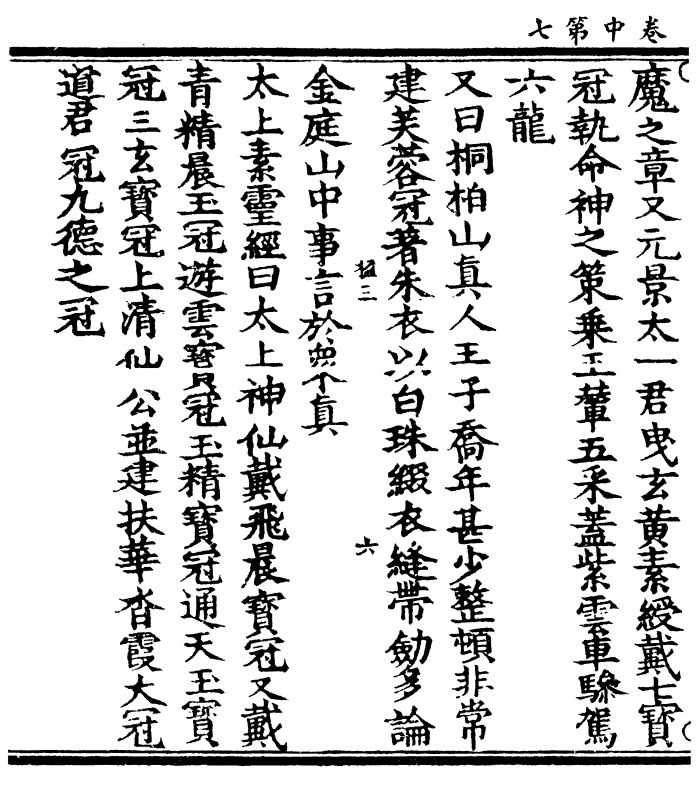 卷中第七
魔之章又元景太一君曵玄黄素綬戴七寳
冠執命神之策乗玉輦五采蓋紫雲車驂駕
六龍
又曰桐柏山真人王子喬年甚少整頓非常
建芙蓉冠著朱衣以白珠綴衣縫帶劒多論
猛三
六
金庭山中事言於衆真
太上素靈經曰太上神仙戴飛晨寳冠又戴
青精晨玉冠遊雲寳冠玉精寳冠通天玉寳
冠三玄寳冠上清仙公並建扶華沓霞大冠
道君冠九德之冠